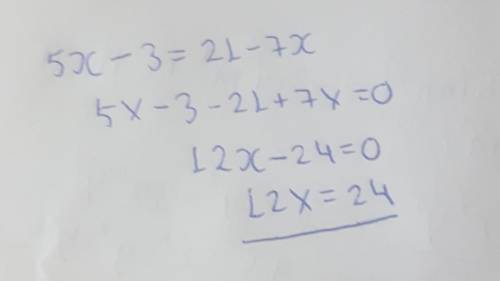 5x - 3 = 21 - 7x
5x - 3 - 21 + 7x = 0
12x - 24 = 0
12x = 24